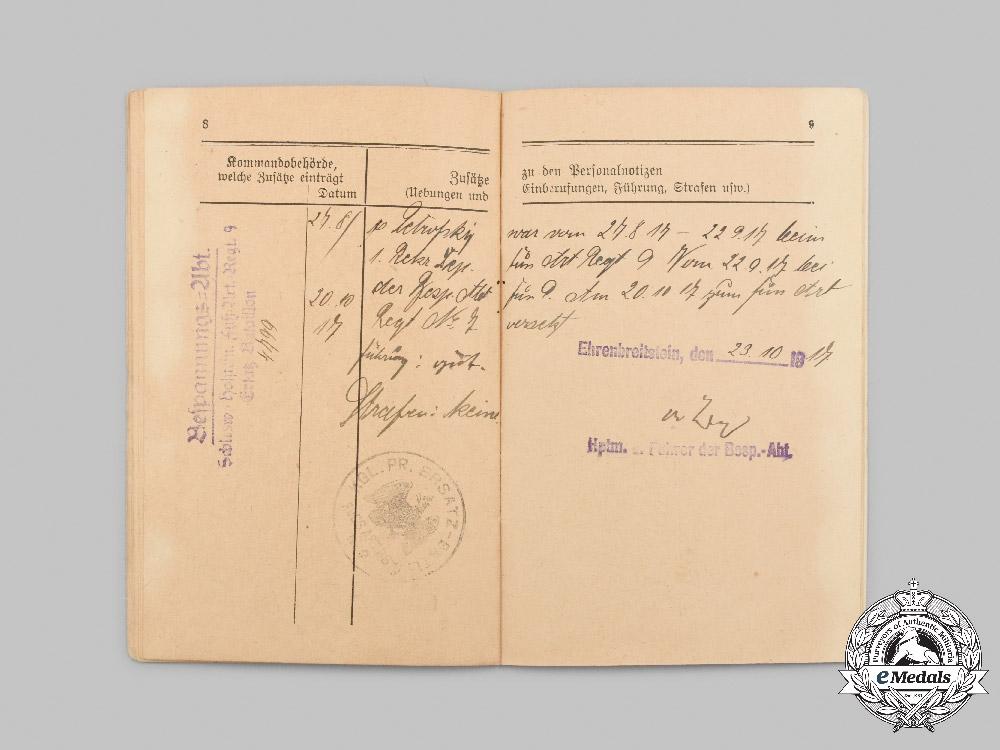 8
Kommandobehörde,
welche Zusätze einträgt
Datum
Zusätze
(Uebungen und
27.8.
p Petrofsky
1. Rekr. Dep.
20.10
der Besp. Abt
17
Regt No 7
Führung: gut.
Strafen: keine
Bespannungs=Abt.
Schlesw.-Holstein. Fuß-Art. Regt. 9
Ersatz-Bataillon
4799
KGL. PR. ERSATZ-BATL.
9
zu den Personalnotizen
Einberufungen, Führung, Strafen usw.)
war vom 27.8.17 – 22.9.17 beim
Fuß Art Regt 9 Vom 22.9.17 bei
Am 20.10.17 zum Fuß Art
versetzt
Ehrenbreitstein, den 23.10 1917
Hptm. u. Führer der Besp.-Abt.
Purveyors of Authentic Militaria
eMedals